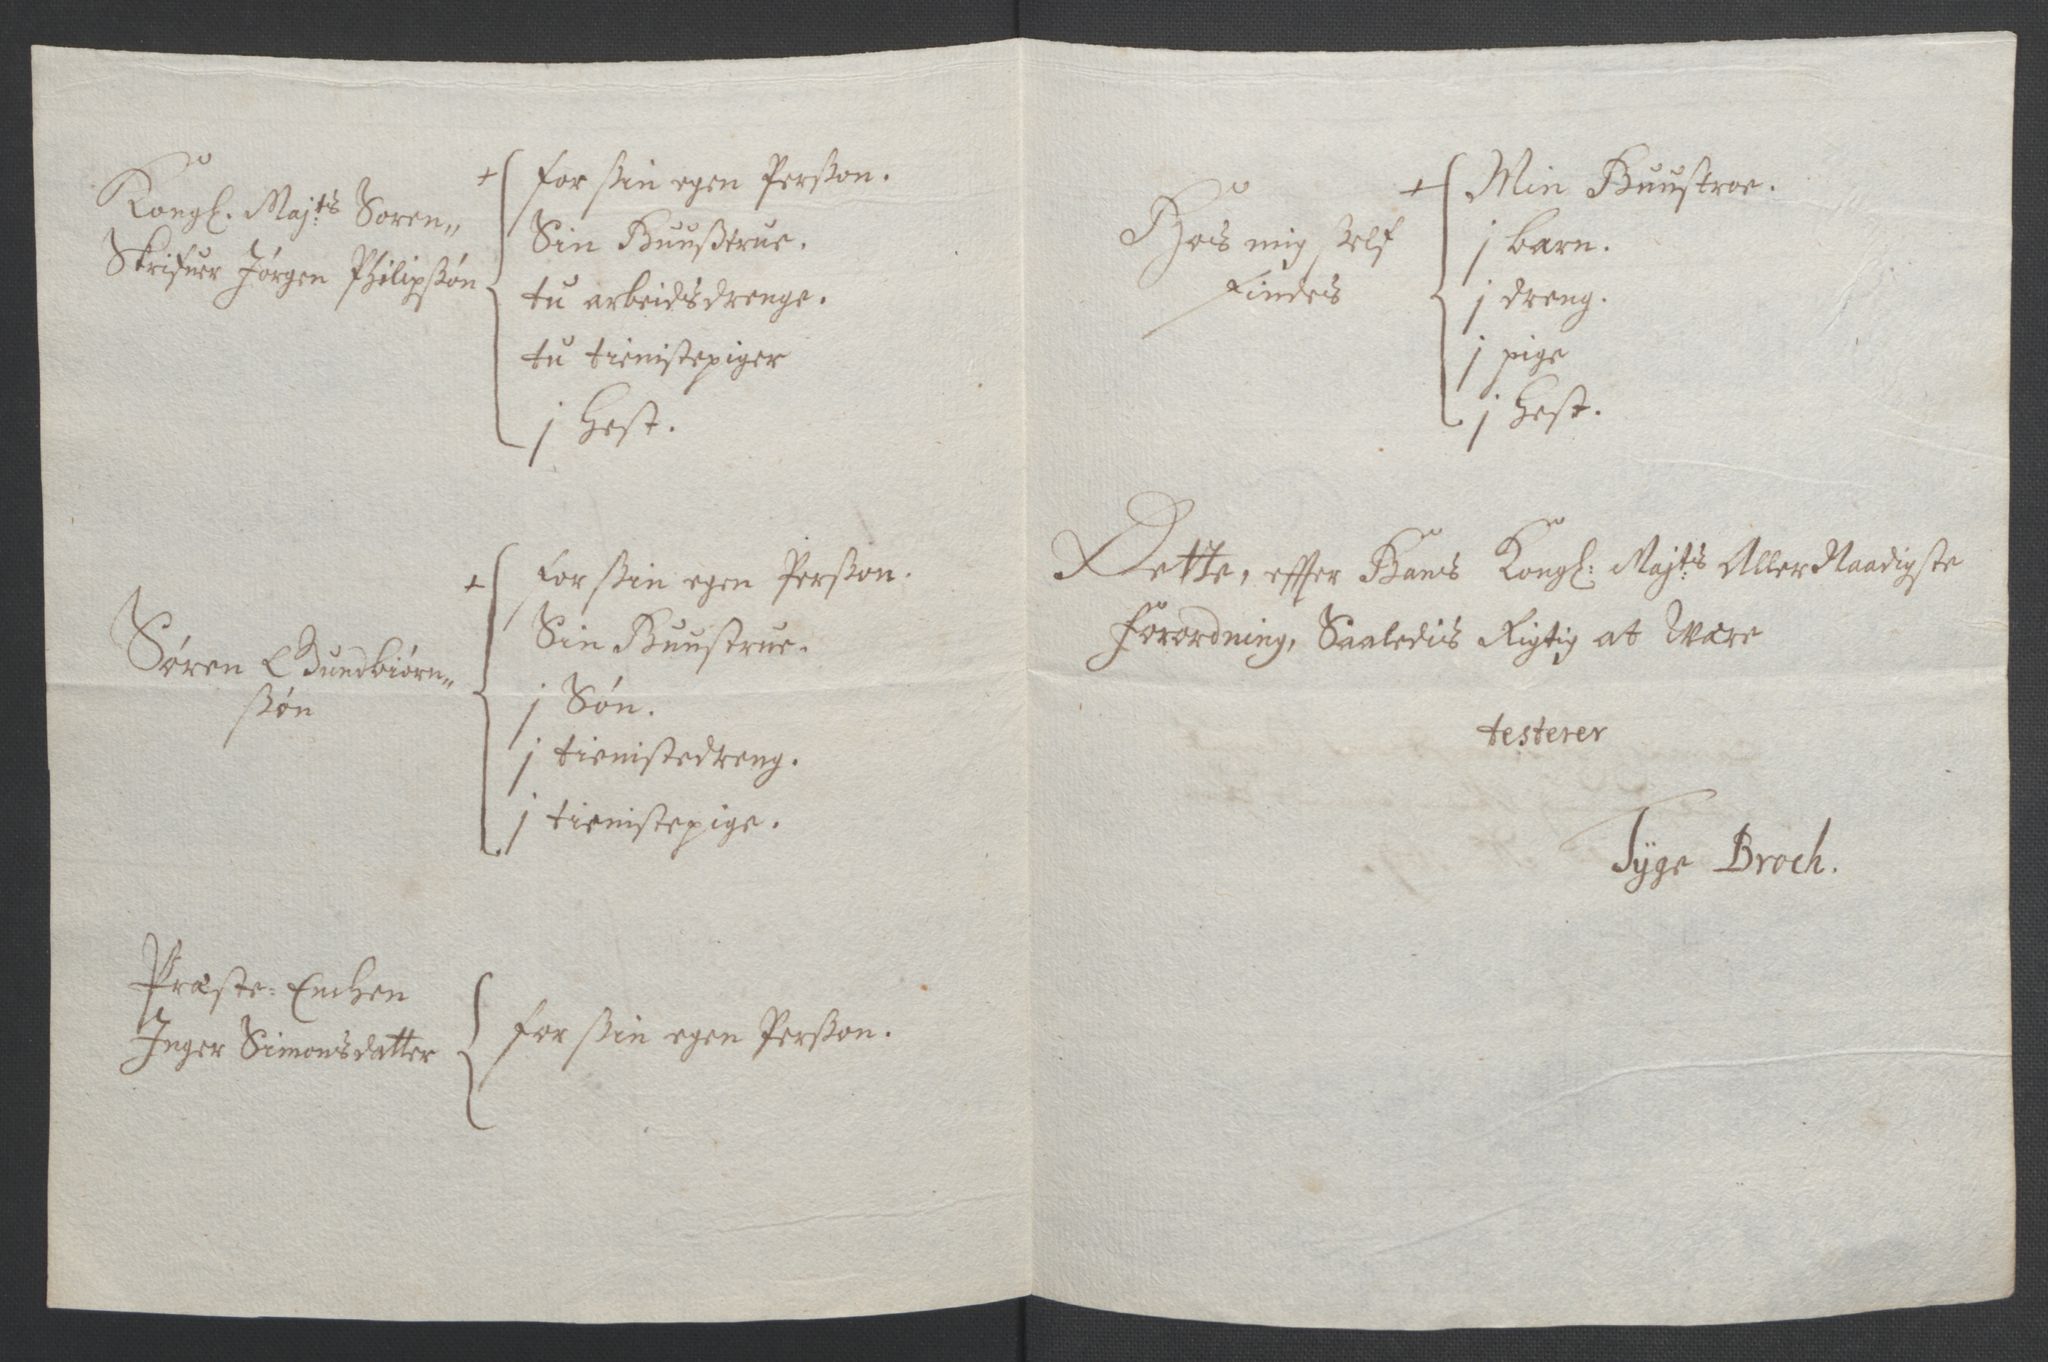 Kongl. Maj:ts Soren„
Skrifuer Jørgen Philipßøn
+ for ßin egen Perßon.
Sin Huußtrue.
tu arbeidsdrenge.
tu tienistepiger
j hest.
Søren Gundbiørn„
ßøn
+ for ßin egen Perßon.
Sin Huustrue.
j Søn.
j tienistedreng.
j tienistepige.
Præste-Enchen
Inger Simonsdatter
for ßin egen Perßon.
Hois mig self
Findes
+ Min Huustroe.
j barn.
j dreng.
j pige
j hest.
Dette, effter Hans Kongl: Maj:ts Aller Naadigste
Forordning, Saaledis Rigtig at Være
testerer
Tÿge Broch.